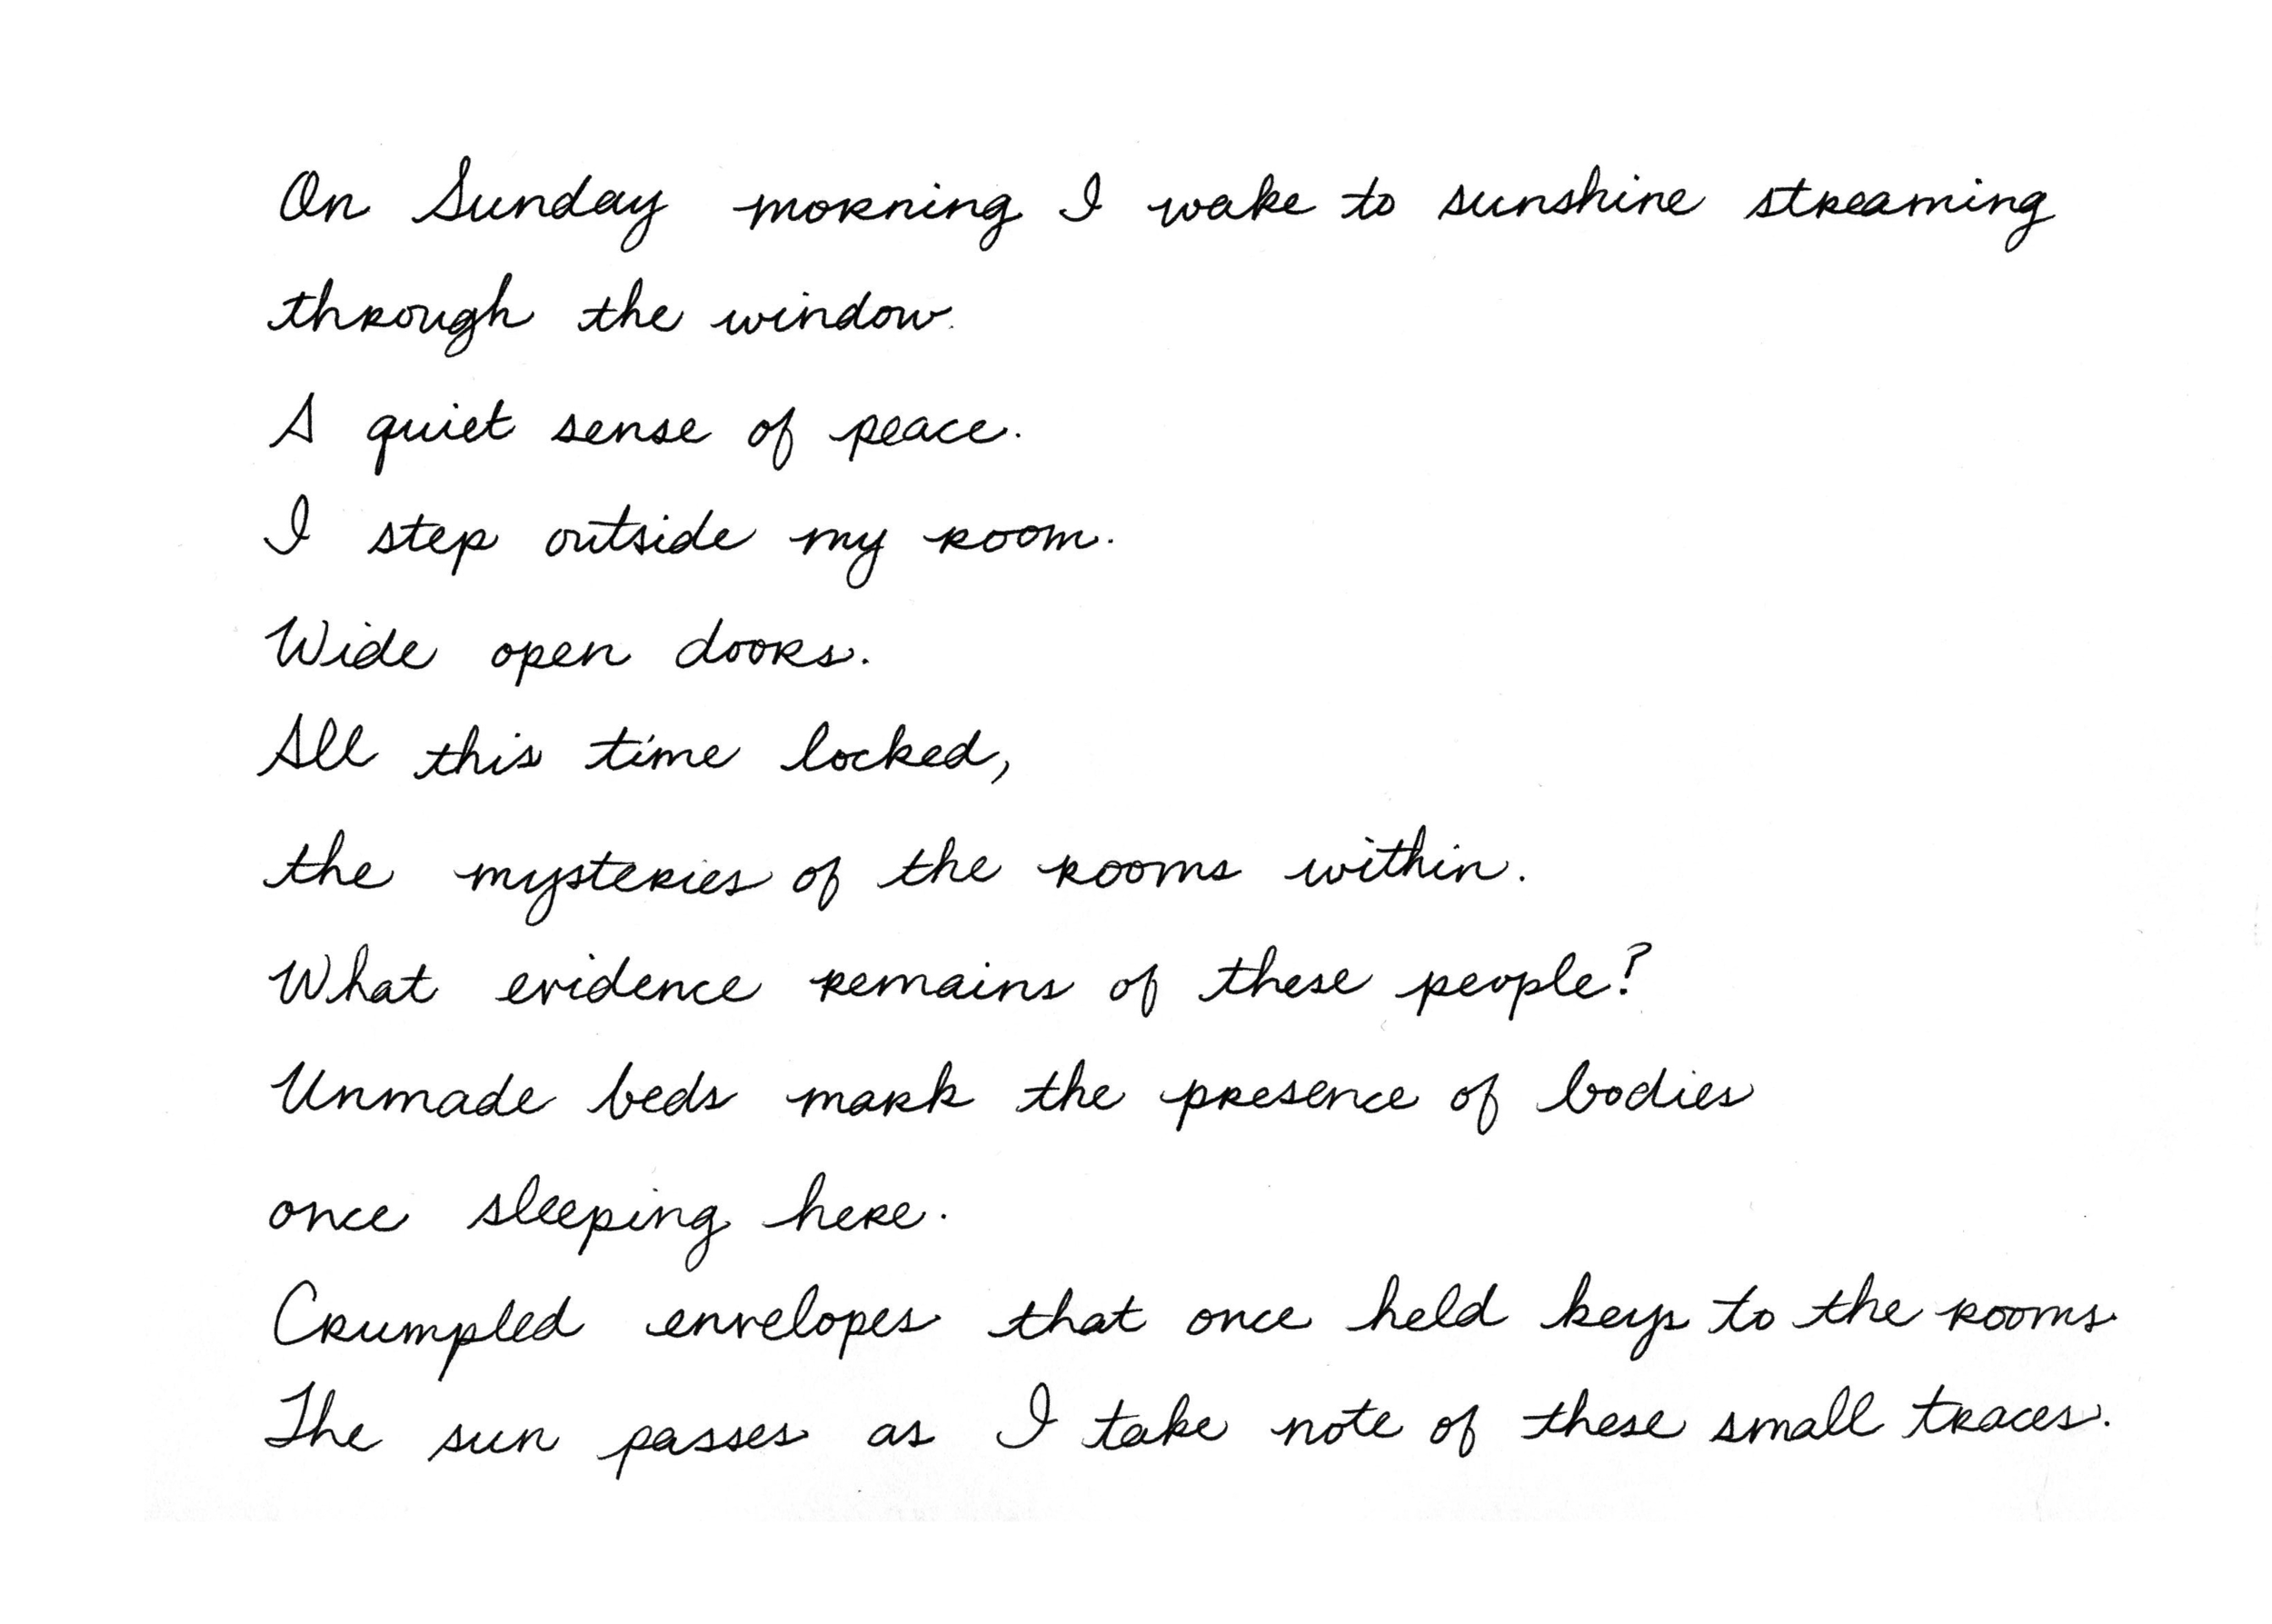 On Sunday morning I wake to sunshine streaming
through the window.
A quiet sense of peace.
I step outside my room.
Wide open doors.
All this time locked,
the mysteries of the rooms within.
What evidence remains of these people?
Unmade beds mark the presence of bodies
once sleeping here.
Crumpled envelopes that once held keys to the rooms.
The sun passes as I take note of these small traces.